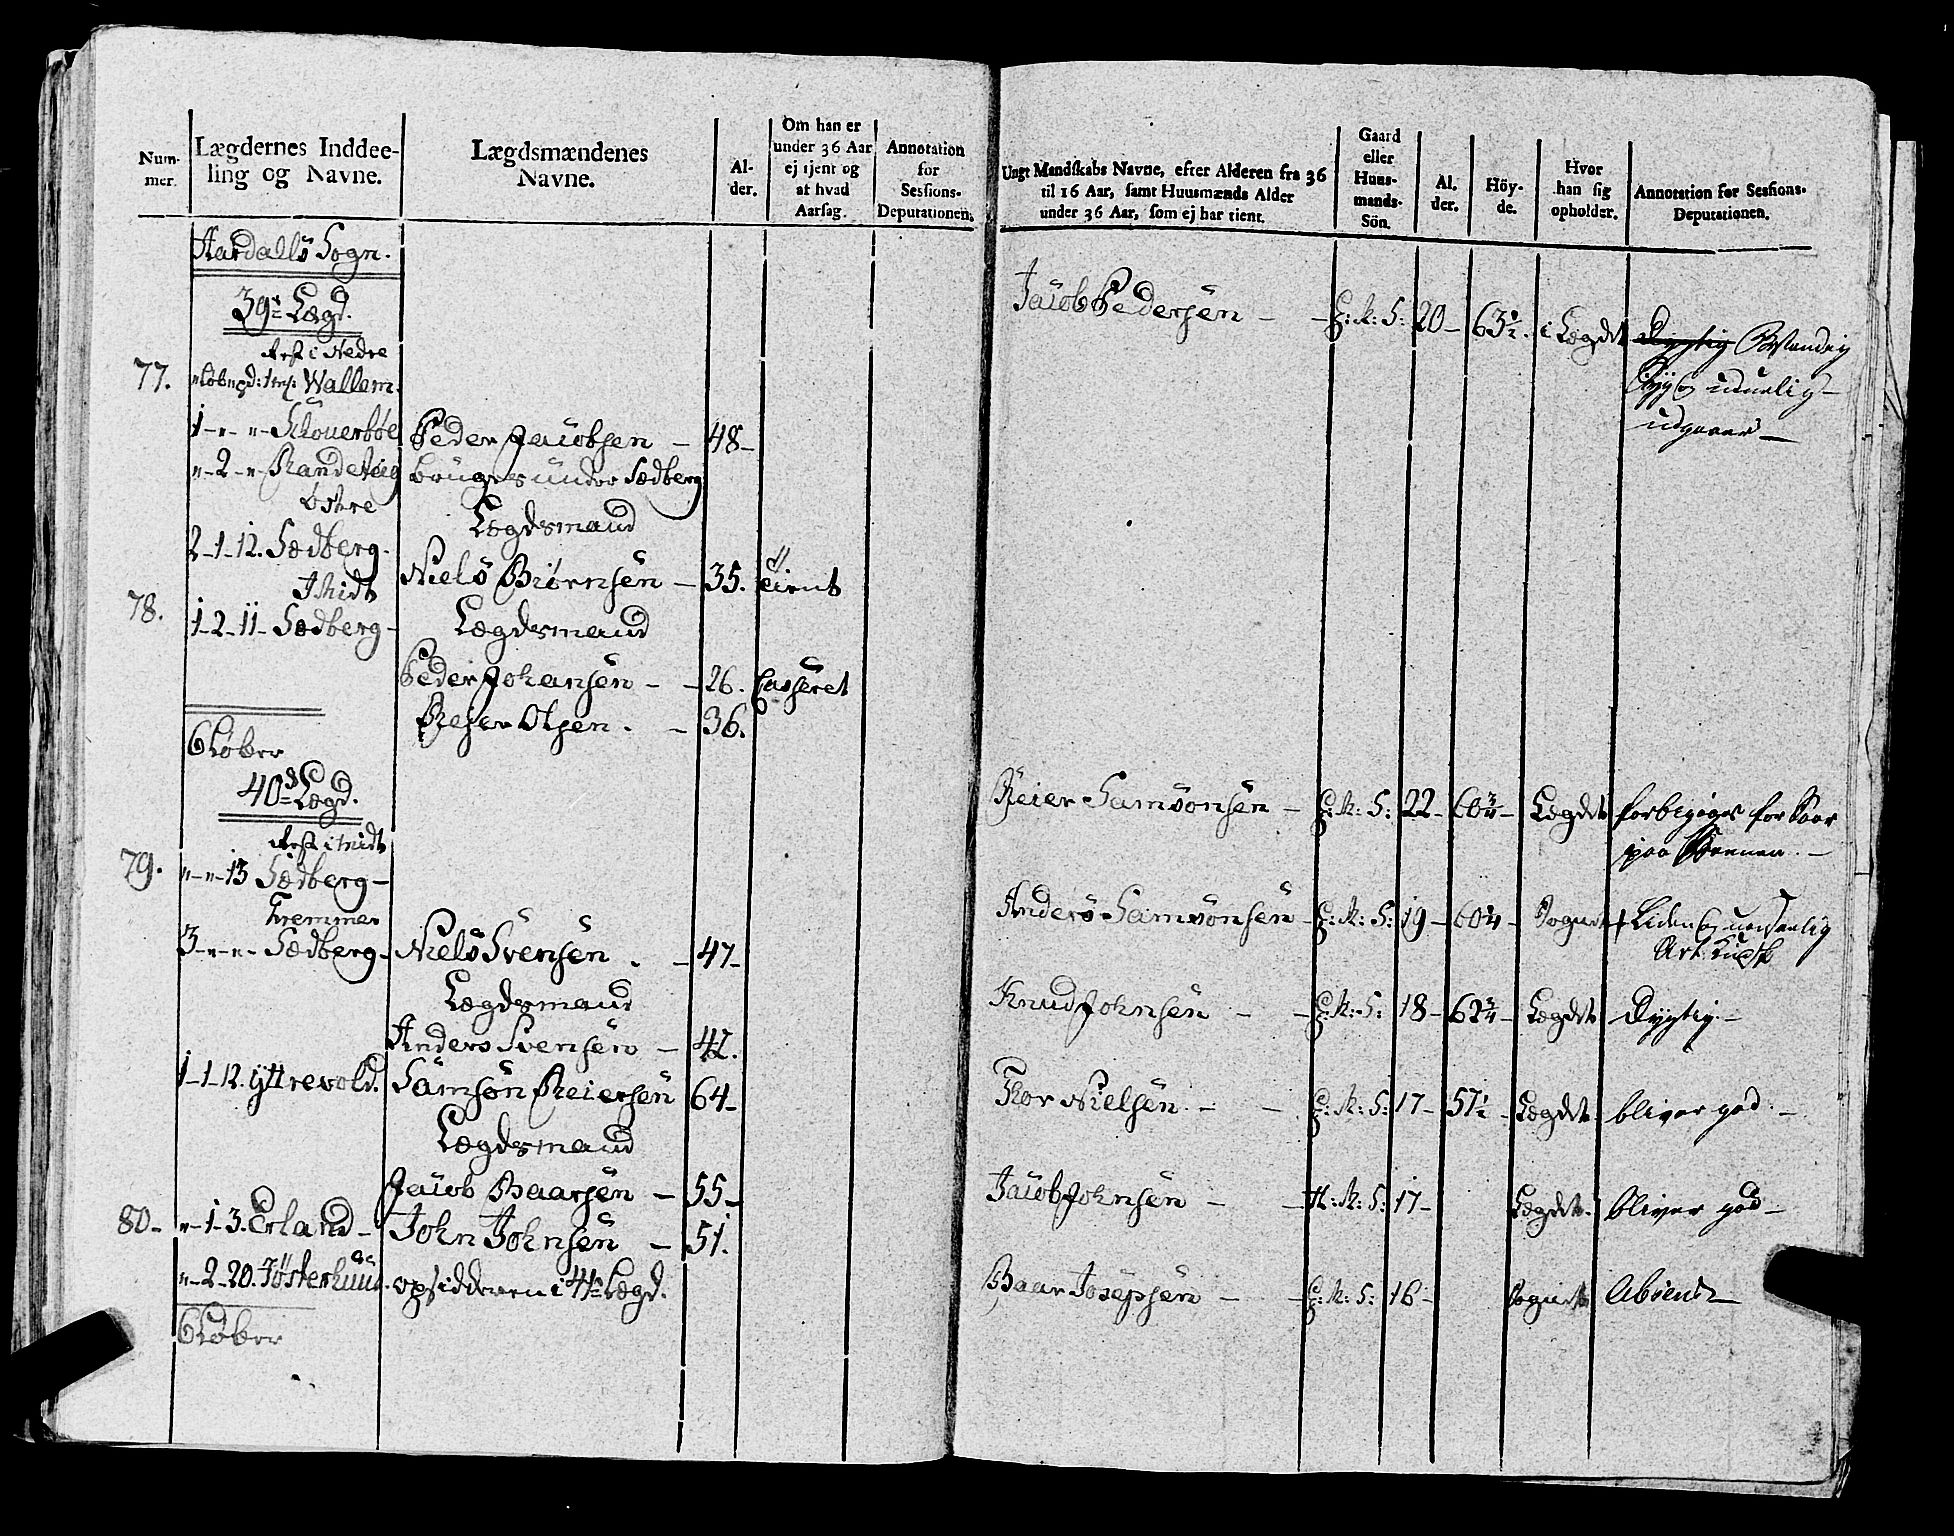 Num-
mer.
Lægdernes Inddee-
ling og Navne.
Lægdsmændenes
Navne.
Al-
der.
Om han er
under 36 Aar
ej tjent og
af hvad
Aarsag.
Annotation
for
Sessions-
Deputationen.
Aardalls Sogn.
39te Lægd.
Rest i Nedre
77. Wallem.
1 - " - " - Schouerbøe Peder Jacobsen - 48 -
" - 2 - " - Randeteig bruges under Sædberg
Østre Lægdsmand
2 - 1 - 12. Sædberg - Niels Biørnsen - 35. tient
Midt
78. 1 - 2 - 11 - Sædberg - Lægdsmand
Peder Johansen - - 26. Casseret
Reier Olsen . - 36.
6 Løber
40de Lægd.
Rest i Midt
79. " - " - 13 Sædberg -
Fremmer
3 - " - " - Sædberg - Niels Svensen . - 47 -
Lægdsmand
Anders Svensen - 42.
1 - 1 - 12. Yttrevold. Samson Reiersen 64 -
Lægdsmand
Jacob Baarsen - 55 -
80 - " - 1 - 3. Erland - John Johnsen - 51.
" - 2 - 20. opsidderen i 41te Lægd.
6 Løber
Ungt Mandskabs Navne, efter Alderen fra 36
til 16 Aar, samt Huusmænds Alder
under 36 Aar, som ej har tient.
Gaard
eller
Huus-
mands-
Sön.
Al.
der.
Höy-
de.
Hvor
han sig
opholder.
Annotation for Sessions-
Deputationen.
Jacob Pedersen - - G: M: S: 20 - 63 1/2. i Lægdet Dygtig
udgaaer -
Reier Samsonsen - G: M: S: 22 - 60 3/4 - Lægdet forbigaaes for Saar
paa
Anders Samsonsen - G: M: S: 19 - 60 1/4 - Sognet Liden og
Art. Kudsk
Knud Johnsen - - G: M: S: 18 - 62 3/4 - Lægdet Dygtig. -
Thor Nielsen. - - G: M: S: 17 - 57 1/2 - Lægdet. bliver god. -
Jacob Johnsen - - H: M: S: 17 - Lægdet. bliver god -
Baar Josepsen - - G: M: S: 16 - Sognet Absent -